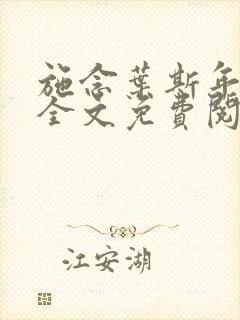 施念葉斯年
全文免費閱
江安湖